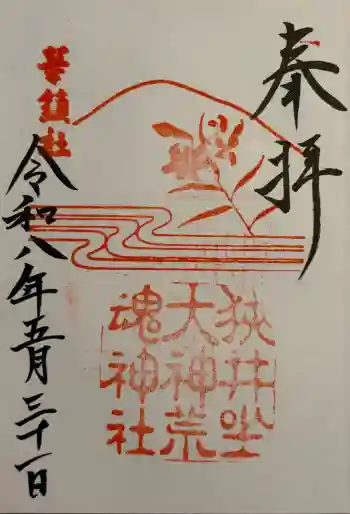 奉拝
狭井坐
大神荒
魂神社
華鎮社
令和八年五月三十一日